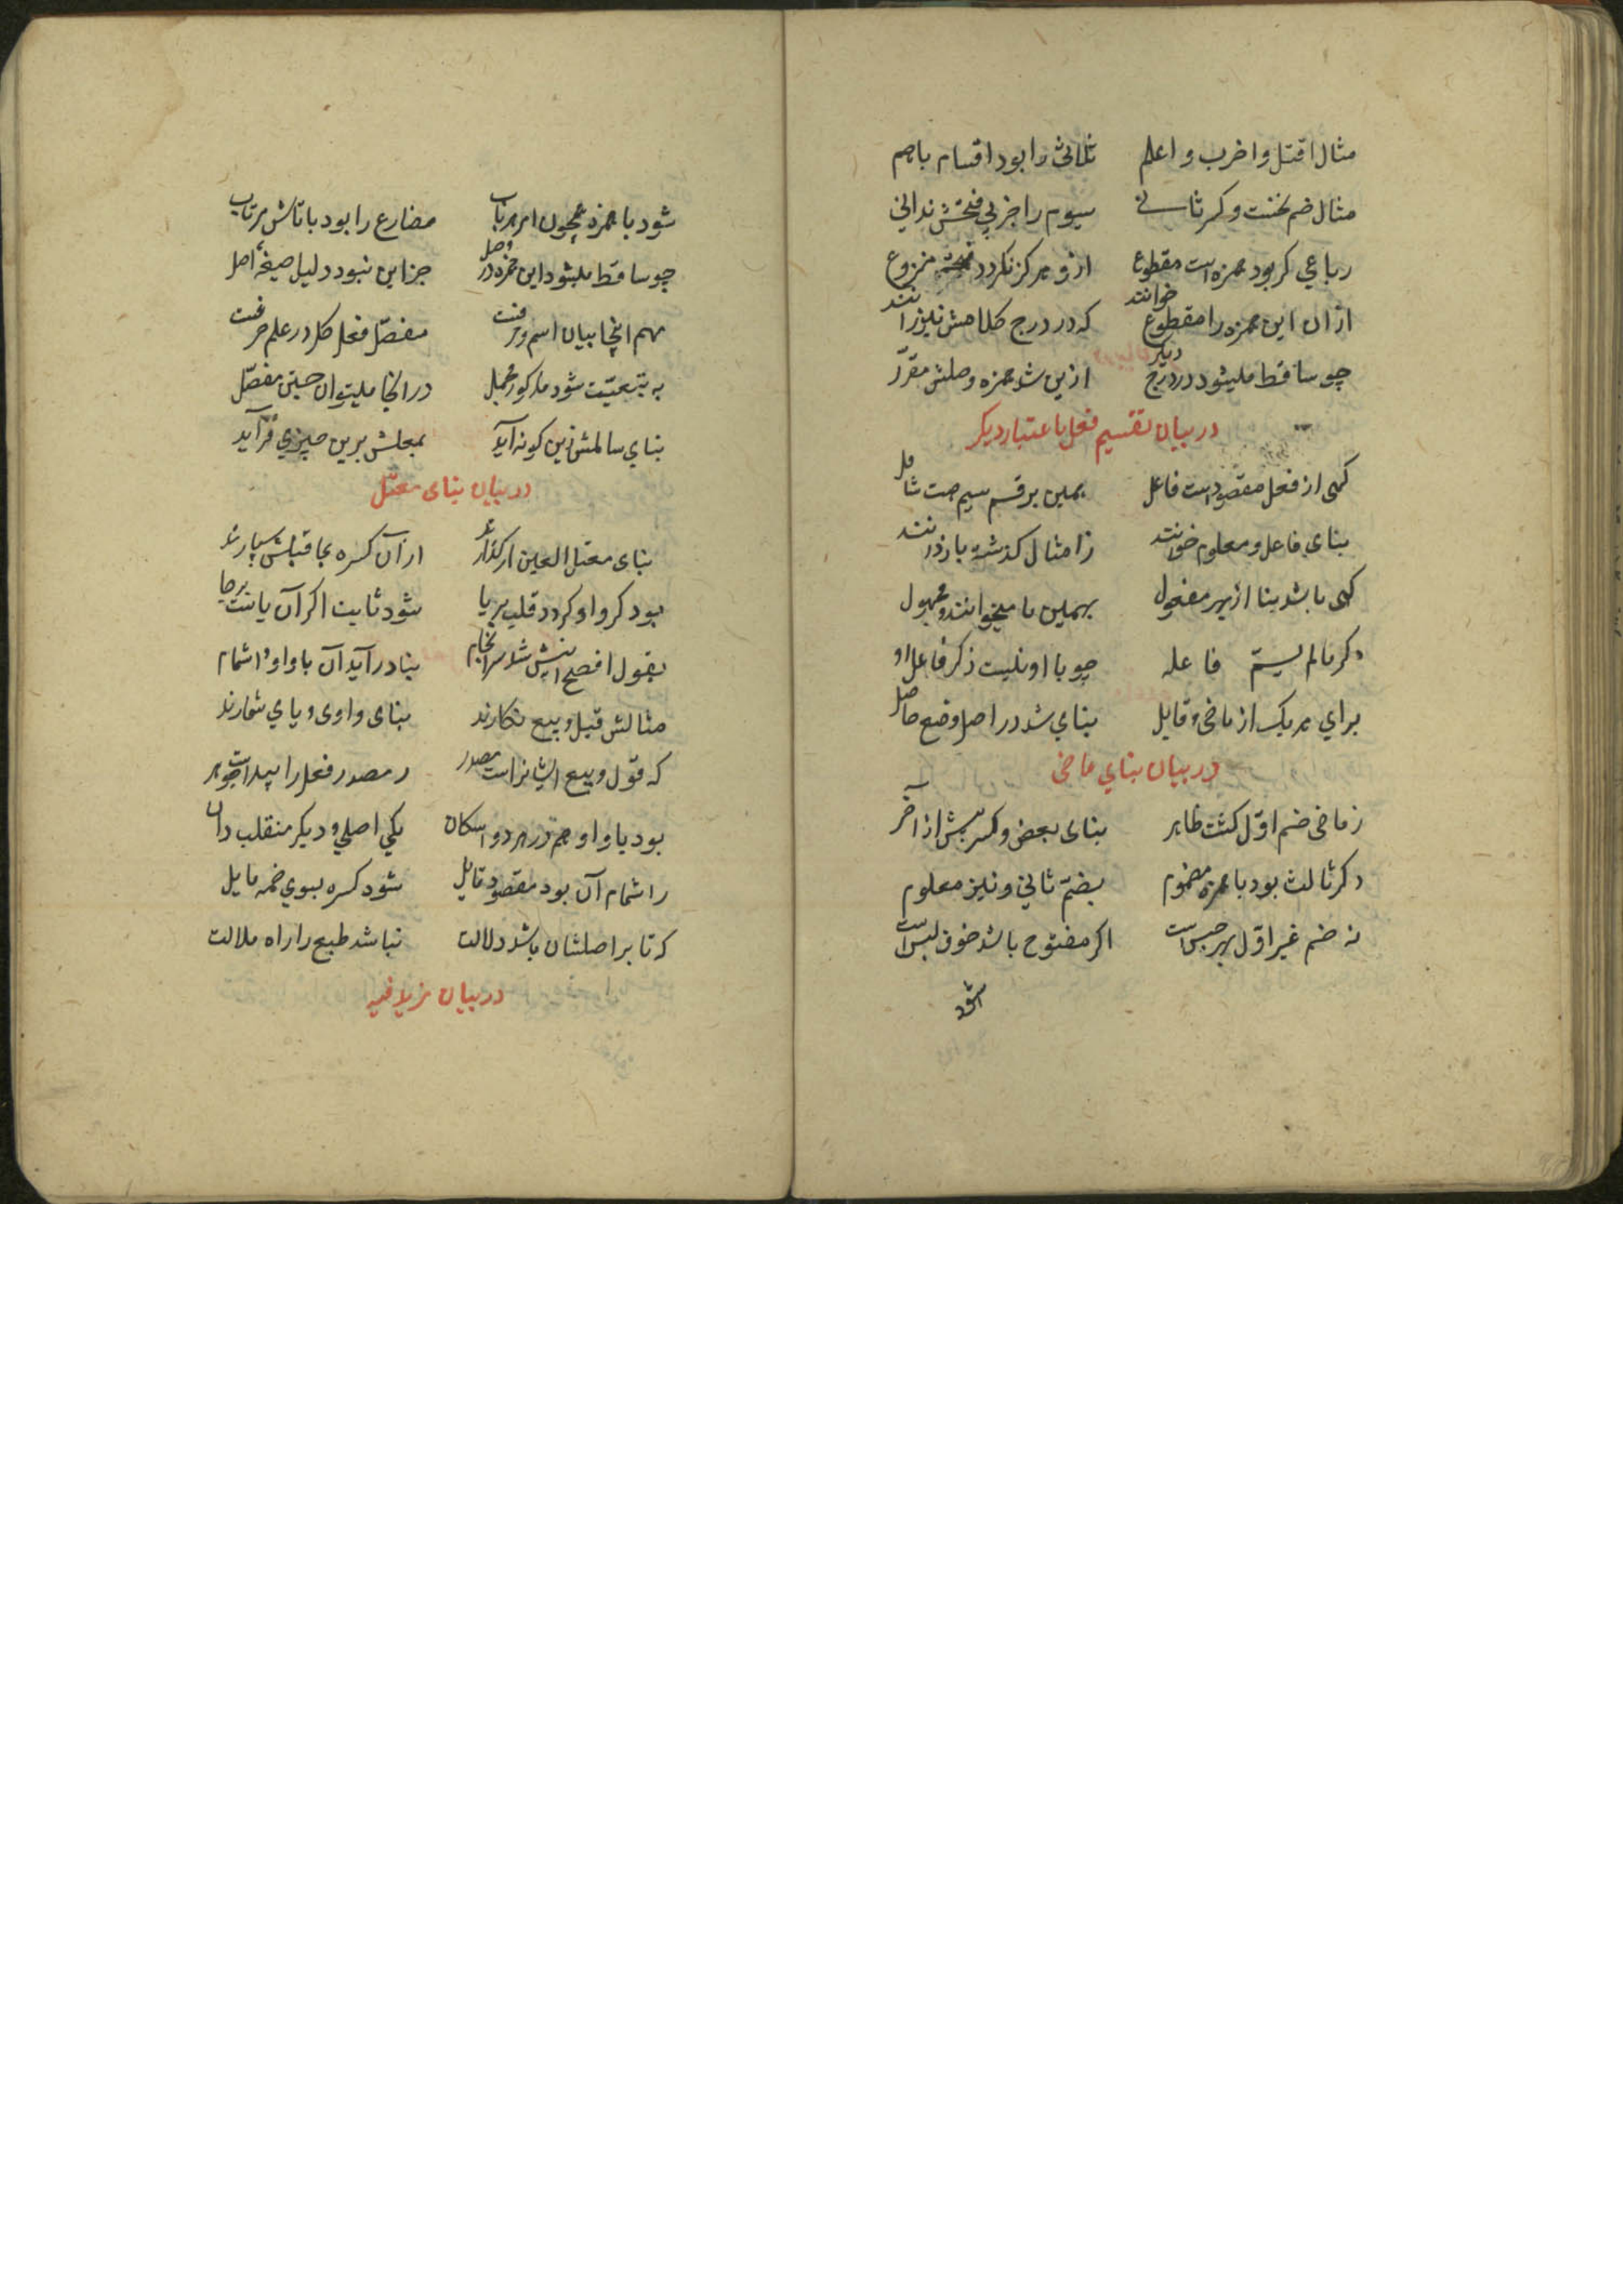 مثال اقتل و اضرب و اعلم ثلاثی را بود اقسام باهم
مثال ضم نخست و کسر ثانی سیوم را جز پی فتحش ندانی
رباعی کر بود همزه است مقطوع ازو هرکز نکردد منزوع
ازان این همزه را مقطوع خوانند که در درج کلامش نیز رانند
چو ساقط میشود در درج دیکر ازین شد همزه وصلش مقرّر
در بیان تقسیم فعل باعتبار دیکر
کهی از فعل مقصود است فاعل همین بر قسم سیم هست شامل
بنای فاعل و معلوم خوانند
کهی باشد بنا از بهر مفعول بهمین ما میخوانند و مجهول
دکر مالم یسمّ فاعله چو با او نیست ذکر فاعل او
برای هر یک از ماضی و قابل بنای شد در اصل وضع حاصل
در بیان بنای ماضی
ز ماضی ضم اوّل کشت ظاهر بنای بعض و کسر پیش از آخر
دکر ثالث بود با همزه مضموم بضمّ ثانی و نیز معلوم
نه ضم غیر اوّل بهر حبس است اکر مفتوح باشد خوف لبس است
شود
شود با همزه همچون امر مضارع را بود با تاش
چو ساقط میشود این همزه در وصل جز این نبود دلیل صیغهٔ اصل
مهم اینجا بیان اسم و حرفست مفصّل فعل کل در علم صرفست
به تبعیّت شود مذکور مجمل در انجا میتوان جستن مفصّل
بنای سالمش زین کونه آید بمعلش برین چیزی فزاید
در بیان بنای معتل
بنای معتل العین ار کذارد ازان کسره بما قبلش سپارد
بود کر واو کردد قلب بر یا شود ثابت اکر آن یاست برجا
بقول افصح اینش شد سرانجام بنا در آید آن با واو و اشمام
مثالش قیل و بیع نکارند بنای واوی و یای شمارند
که قول و بیع ایشانراست مصدر ز مصدر فعل را پیداست جوهر
بود یا واو هم در هر دو اسکان یکی اصلی و دیکر منقلب دان
ز اشمام آن بود مقصود قایل شود کسره بسوی ضمه مایل
که تا بر اصلشان باشد دلالت نباشد طبع را راه ملالت
در بیان مزید فیه